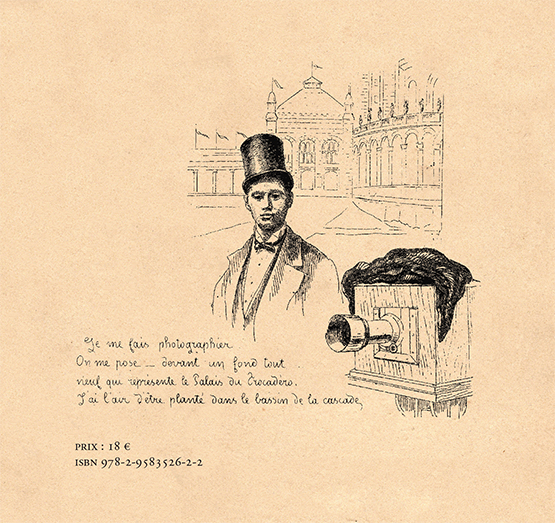 Je me fais photographier
On me pose — devant un fond tout
neuf qui représente le Palais du Trocadéro.
J'ai l'air d'être planté dans le bassin de la cascade,
PRIX : 18 €
ISBN 978-2-9583526-2-2